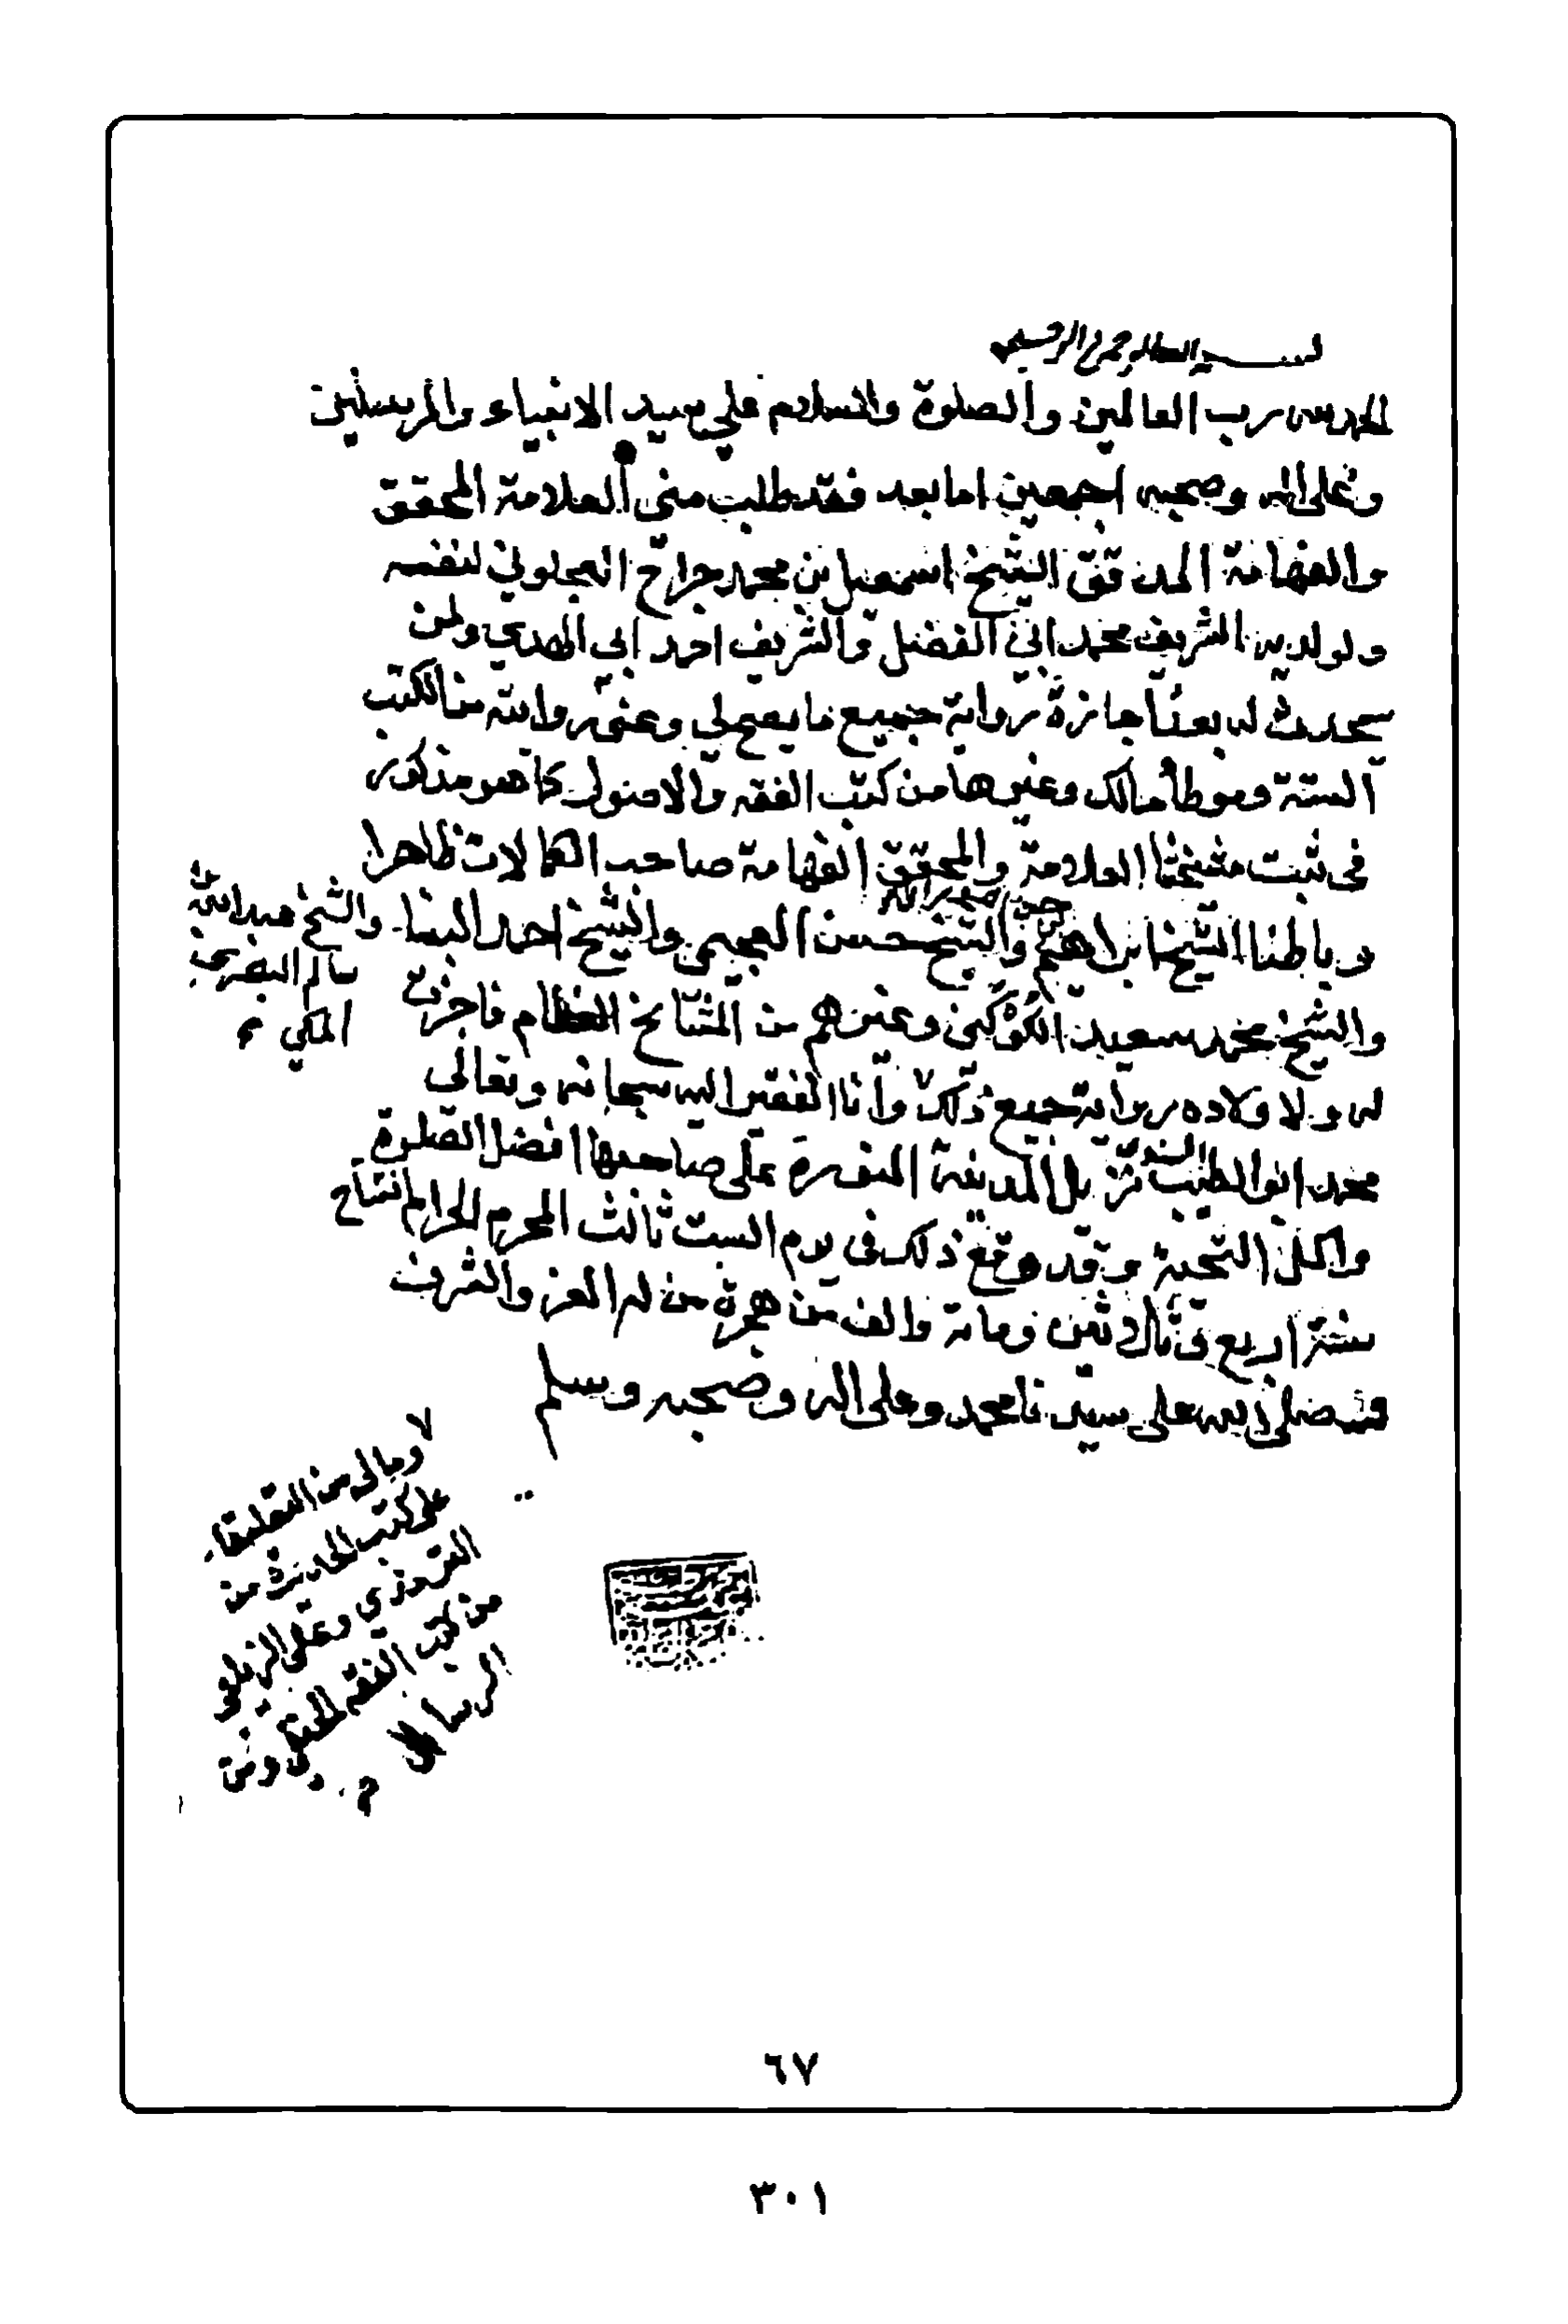 بسم الله الرحمن الرحيم
الحمد لله رب العالمين والصلوة والسلام على سيد الانبياء والمرسلين
وعلى اله وصحبه اجمعين اما بعد فقد طلب مني العلامة المحقق
والفهامة المدقق الشيخ اسمعيل بن محمد جراح العجلوني لنفسه
ولولديه الشريف محمد ابي الفضل والشريف احمد ابي الهدي ولمن
سيحدث له بعد اجازة برواية جميع ما يصح لي وعني روايته من الكتب
الستة وموطأ مالك وغيرها من كتب الفقه والاصول كما هو مذكور
في ثبت مشيختنا العلامة والمحقق الفهامة صاحب الكمالات ظاهرا
وباطنا الشيخ ابراهيم والشيخ حسن العجيمي والشيخ احمد البنا والشيخ عبد الله
سالم البصري
المكي
والشيخ محمد سعيد الكوكني وغيرهم من المشائخ العظام فاجزت
له ولاولاده برواية جميع ذلك وانا الفقير الى الله سبحانه وتعالى
محمد ابو الطيب السندي نزيل المدينة المنورة على صاحبها افضل الصلوة
واكمل التحية وقد وقع ذلك في يوم السبت ثالث المحرم الحرام افتتاح
سنة اربع وثلاثين ومائة والف من هجرة من له العز والشرف
وصلى الله على سيدنا محمد وعلى اله وصحبه وسلم
لا
وما لي من التعليق
على كتب الحديث من
الترمذي وعلى
من كتب الفقه الحنفي
ومن
الرسائل
٦٧
٣٠١